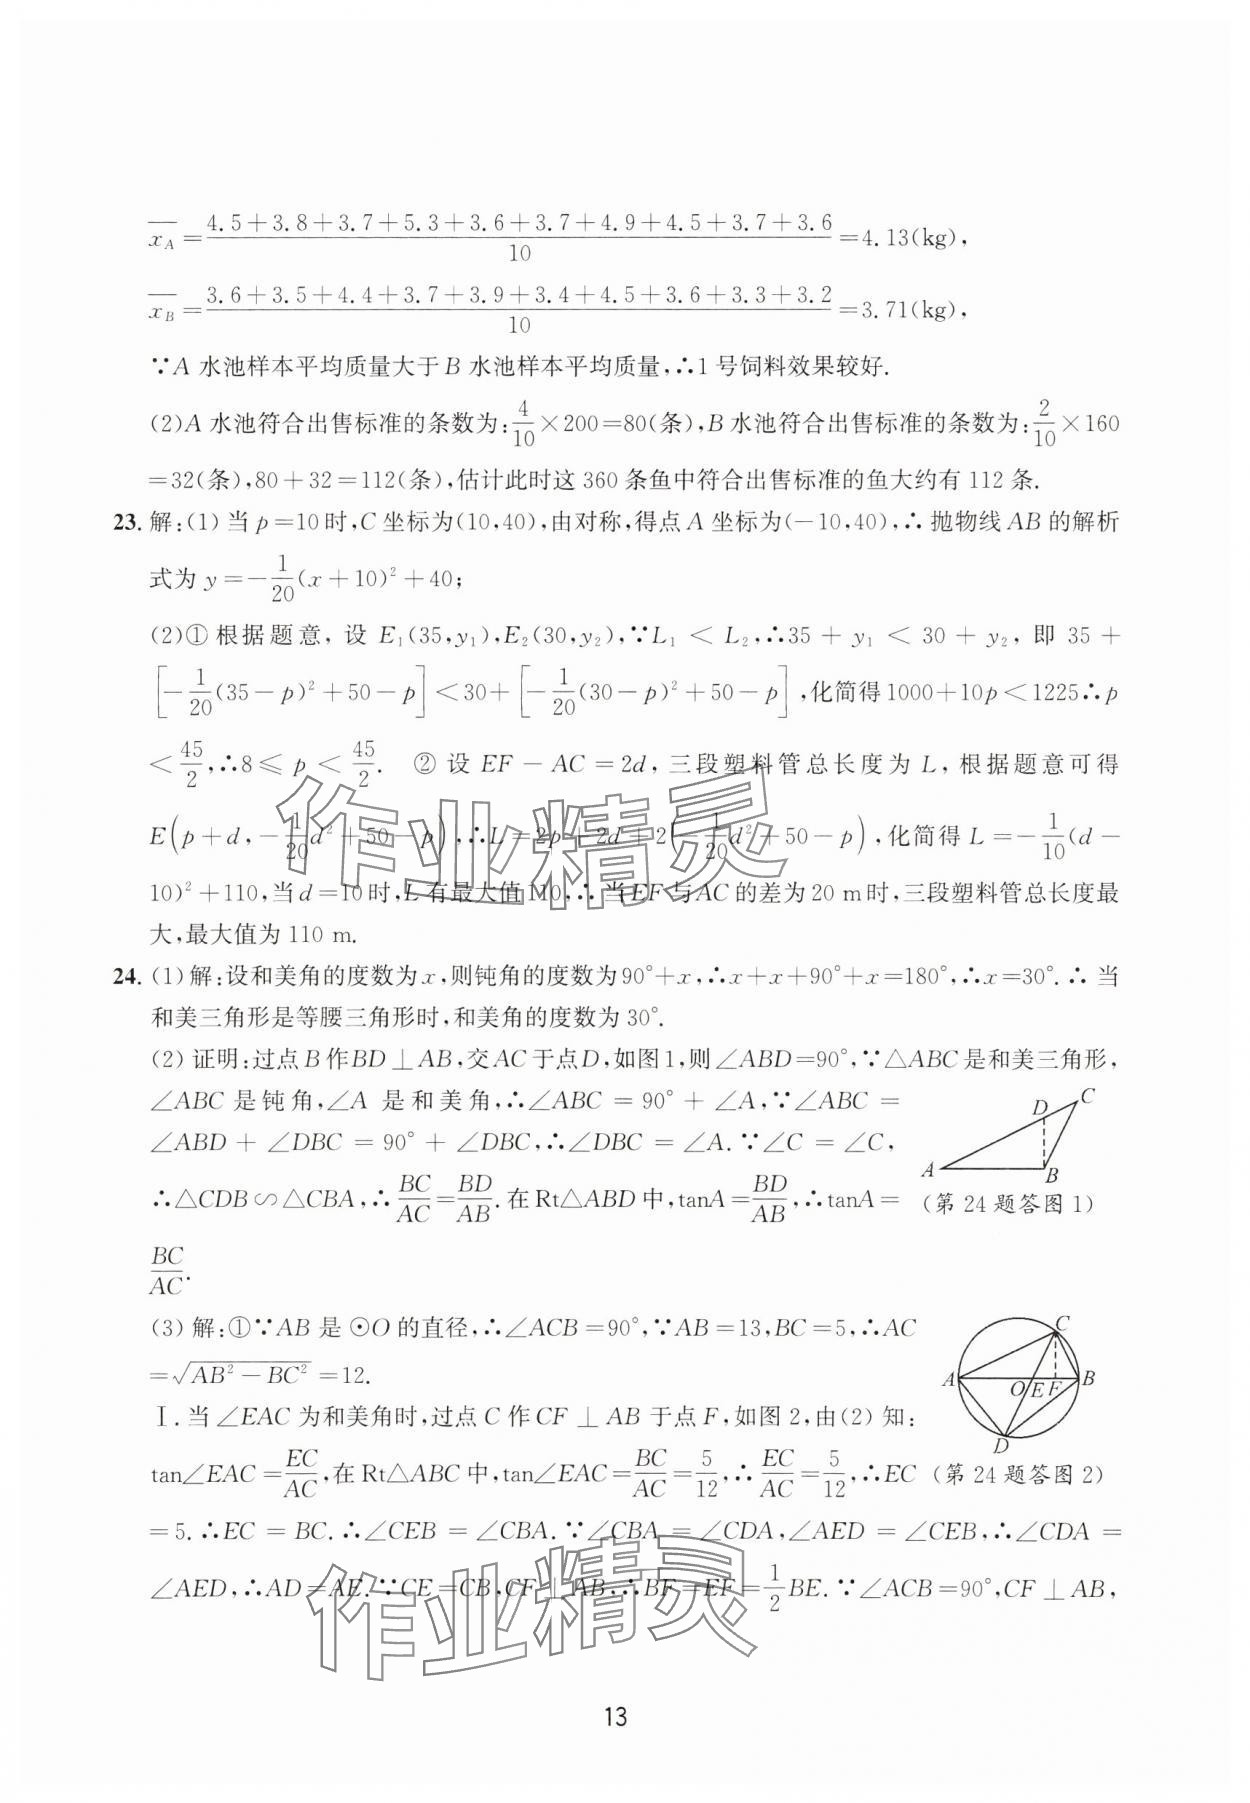 x_A = (4.5+3.8+3.7+5.3+3.6+3.7+4.9+4.5+3.7+3.6)/10 =4.13(kg),
x_B = (3.6+3.5+4.4+3.7+3.9+3.4+4.5+3.6+3.3+3.2)/10 =3.71(kg),
∵A 水池样本平均质量大于 B 水池样本平均质量,∴1 号饲料效果较好.
(2)A 水池符合出售标准的条数为:4/10×200=80(条),B 水池符合出售标准的条数为:2/10×160
=32(条),80+32=112(条),估计此时这 360 条鱼中符合出售标准的鱼大约有 112 条.
23. 解:(1)当 p=10时,C 坐标为(10,40),由对称,得点 A 坐标为(-10,40),∴抛物线 AB 的解析
式为 y=-1/20(x+10)²+40;
(2)①根据题意,设 E₁(35,y₁),E₂(30,y₂),∵L₁<L₂,∴35+y₁<30+y₂,即 35+
[-1/20(35-p)²+50-p]<30+[-1/20(30-p)²+50-p],化简得1000+10p<1225∴p
<45/2,∴8≤p<45/2. ②设 EF-AC=2d,三段塑料管总长度为 L,根据题意可得
E(p+d,-1/20d²+50-p),∴L=2p+2d+2(-1/20d²+50-p),化简得 L=-1/10(d-
10)²+110,当 d=10时,L 有最大值110,∴当 EF 与 AC 的差为 20 m时,三段塑料管总长度最
大,最大值为 110 m.
24. (1)解:设和美角的度数为 x,则钝角的度数为90°+x,∴x+x+90°+x=180°,∴x=30°.∴当
和美三角形是等腰三角形时,和美角的度数为 30°.
(2)证明:过点 B 作 BD⊥AB,交 AC 于点 D,如图1,则∠ABD=90°,∵△ABC 是和美三角形,
∠ABC 是钝角,∠A 是和美角,∴∠ABC=90°+∠A,∵∠ABC=
∠ABD+∠DBC=90°+∠DBC,∴∠DBC=∠A.∵∠C=∠C,
∴△CDB∽△CBA,∴BC/AC=BD/AB.在 Rt△ABD 中,tanA=BD/AB,∴tanA=
BC/AC.
A
B
C
D
(第 24 题答图 1)
(3)解:①∵AB 是⊙O 的直径,∴∠ACB=90°,∵AB=13,BC=5,∴AC
=√(AB²-BC²)=12.
Ⅰ.当∠EAC 为和美角时,过点 C 作 CF⊥AB 于点 F,如图 2,由(2)知:
tan∠EAC=EC/AC,在 Rt△ABC 中,tan∠EAC=BC/AC=5/12,∴EC/AC=5/12,∴EC
A
B
C
D
O
E
F
(第 24 题答图 2)
=5.∴EC=BC.∴∠CEB=∠CBA.∵∠CBA=∠CDA,∠AED=∠CEB,∴∠CDA=
∠AED,∴AD=AE.∵CE=CB,CF⊥AB,∴BF=EF=1/2BE.∵∠ACB=90°,CF⊥AB,
作业精灵
作业精灵
13